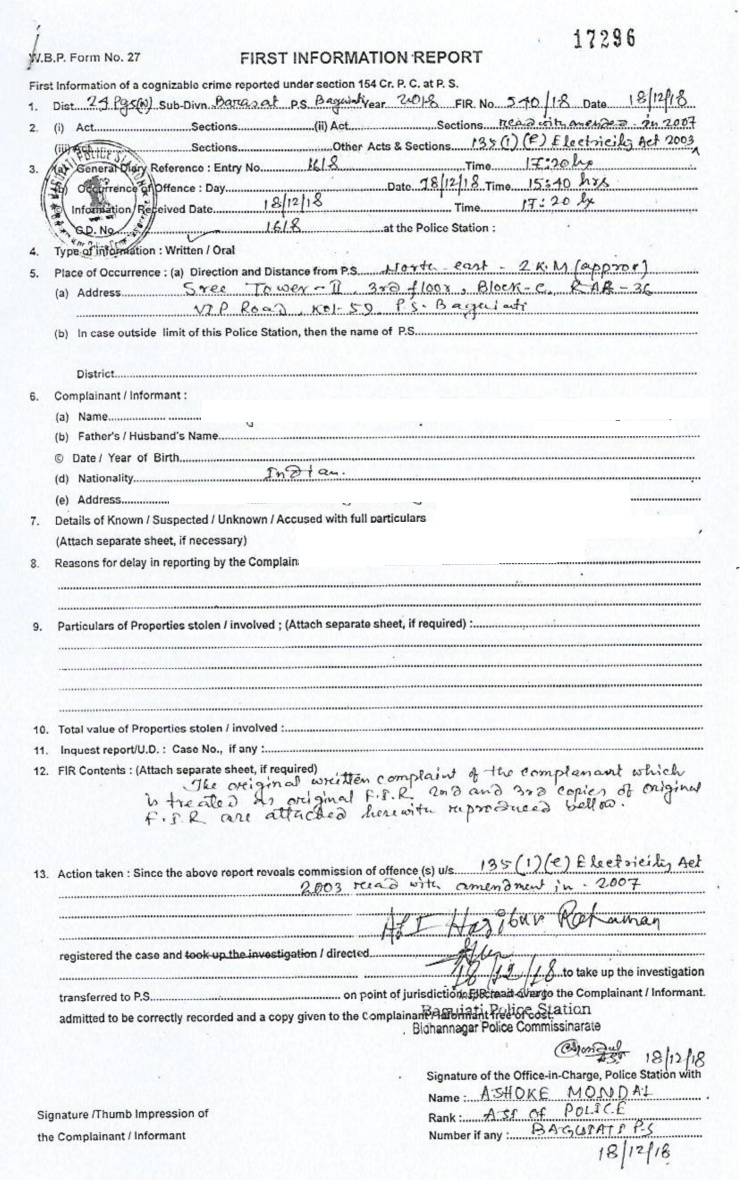 17296
W.B.P. Form No. 27 FIRST INFORMATION REPORT
First Information of a cognizable crime reported under section 154 Cr. P. C. at P. S.
1. Dist. 24 Pgs(N) Sub-Divn. Barasat P.S. Baguiati Year 2018 FIR. No. 540/18 Date 18/12/18
2. (i) Act............Sections............(ii) Act............Sections read with amended in 2007
(iii) Act............Sections............Other Acts & Sections 135(1)(e) Electricity Act 2003
3. General Diary Reference : Entry No. 1618 Time 17:20 hr
Occurrence of Offence : Day............Date 18/12/18 Time 15:40 hrs
Information / Received Date 18/12/18 Time 17:20 hr
G.D. No. 1618 at the Police Station :
4. Type of information : Written / Oral
5. Place of Occurrence : (a) Direction and Distance from P.S. North-east - 2 K.M (approx)
(a) Address Sree Tower-II, 3rd floor, Block-C, RAA-36
VIP Road, Kol-59 P.S- Baguiati
(b) In case outside limit of this Police Station, then the name of P.S.
District
6. Complainant / Informant :
(a) Name
(b) Father's / Husband's Name
© Date / Year of Birth
(d) Nationality Indian.
(e) Address
7. Details of Known / Suspected / Unknown / Accused with full particulars
(Attach separate sheet, if necessary)
8. Reasons for delay in reporting by the Complain
9. Particulars of Properties stolen / involved ; (Attach separate sheet, if required) :
10. Total value of Properties stolen / involved :
11. Inquest report/U.D. : Case No., if any :
12. FIR Contents : (Attach separate sheet, if required)
The original written complaint of the complenant which
is treated as original F.I.R 2nd and 3rd copies of original
F.I.R are attached herewith reproduced bellow.
13. Action taken : Since the above report reveals commission of offence (s) u/s. 135(1)(e) Electricity Act
2003 read with amendment in - 2007
ASI Hazibur Rahaman
registered the case and took up the investigation / directed
18/12/18 to take up the investigation
transferred to P.S. on point of jurisdiction. FIR read over to the Complainant / Informant.
admitted to be correctly recorded and a copy given to the Complainant / Informant free of cost.
Baguiati Police Station
Bidhannagar Police Commissinarate
ASI 18/12/18
Signature of the Office-in-Charge, Police Station with
Name : ASHOKE MONDAL
Rank : ASI OF POLICE
Number if any : BAGUIATI P.S
18/12/18
Signature /Thumb Impression of
the Complainant / Informant